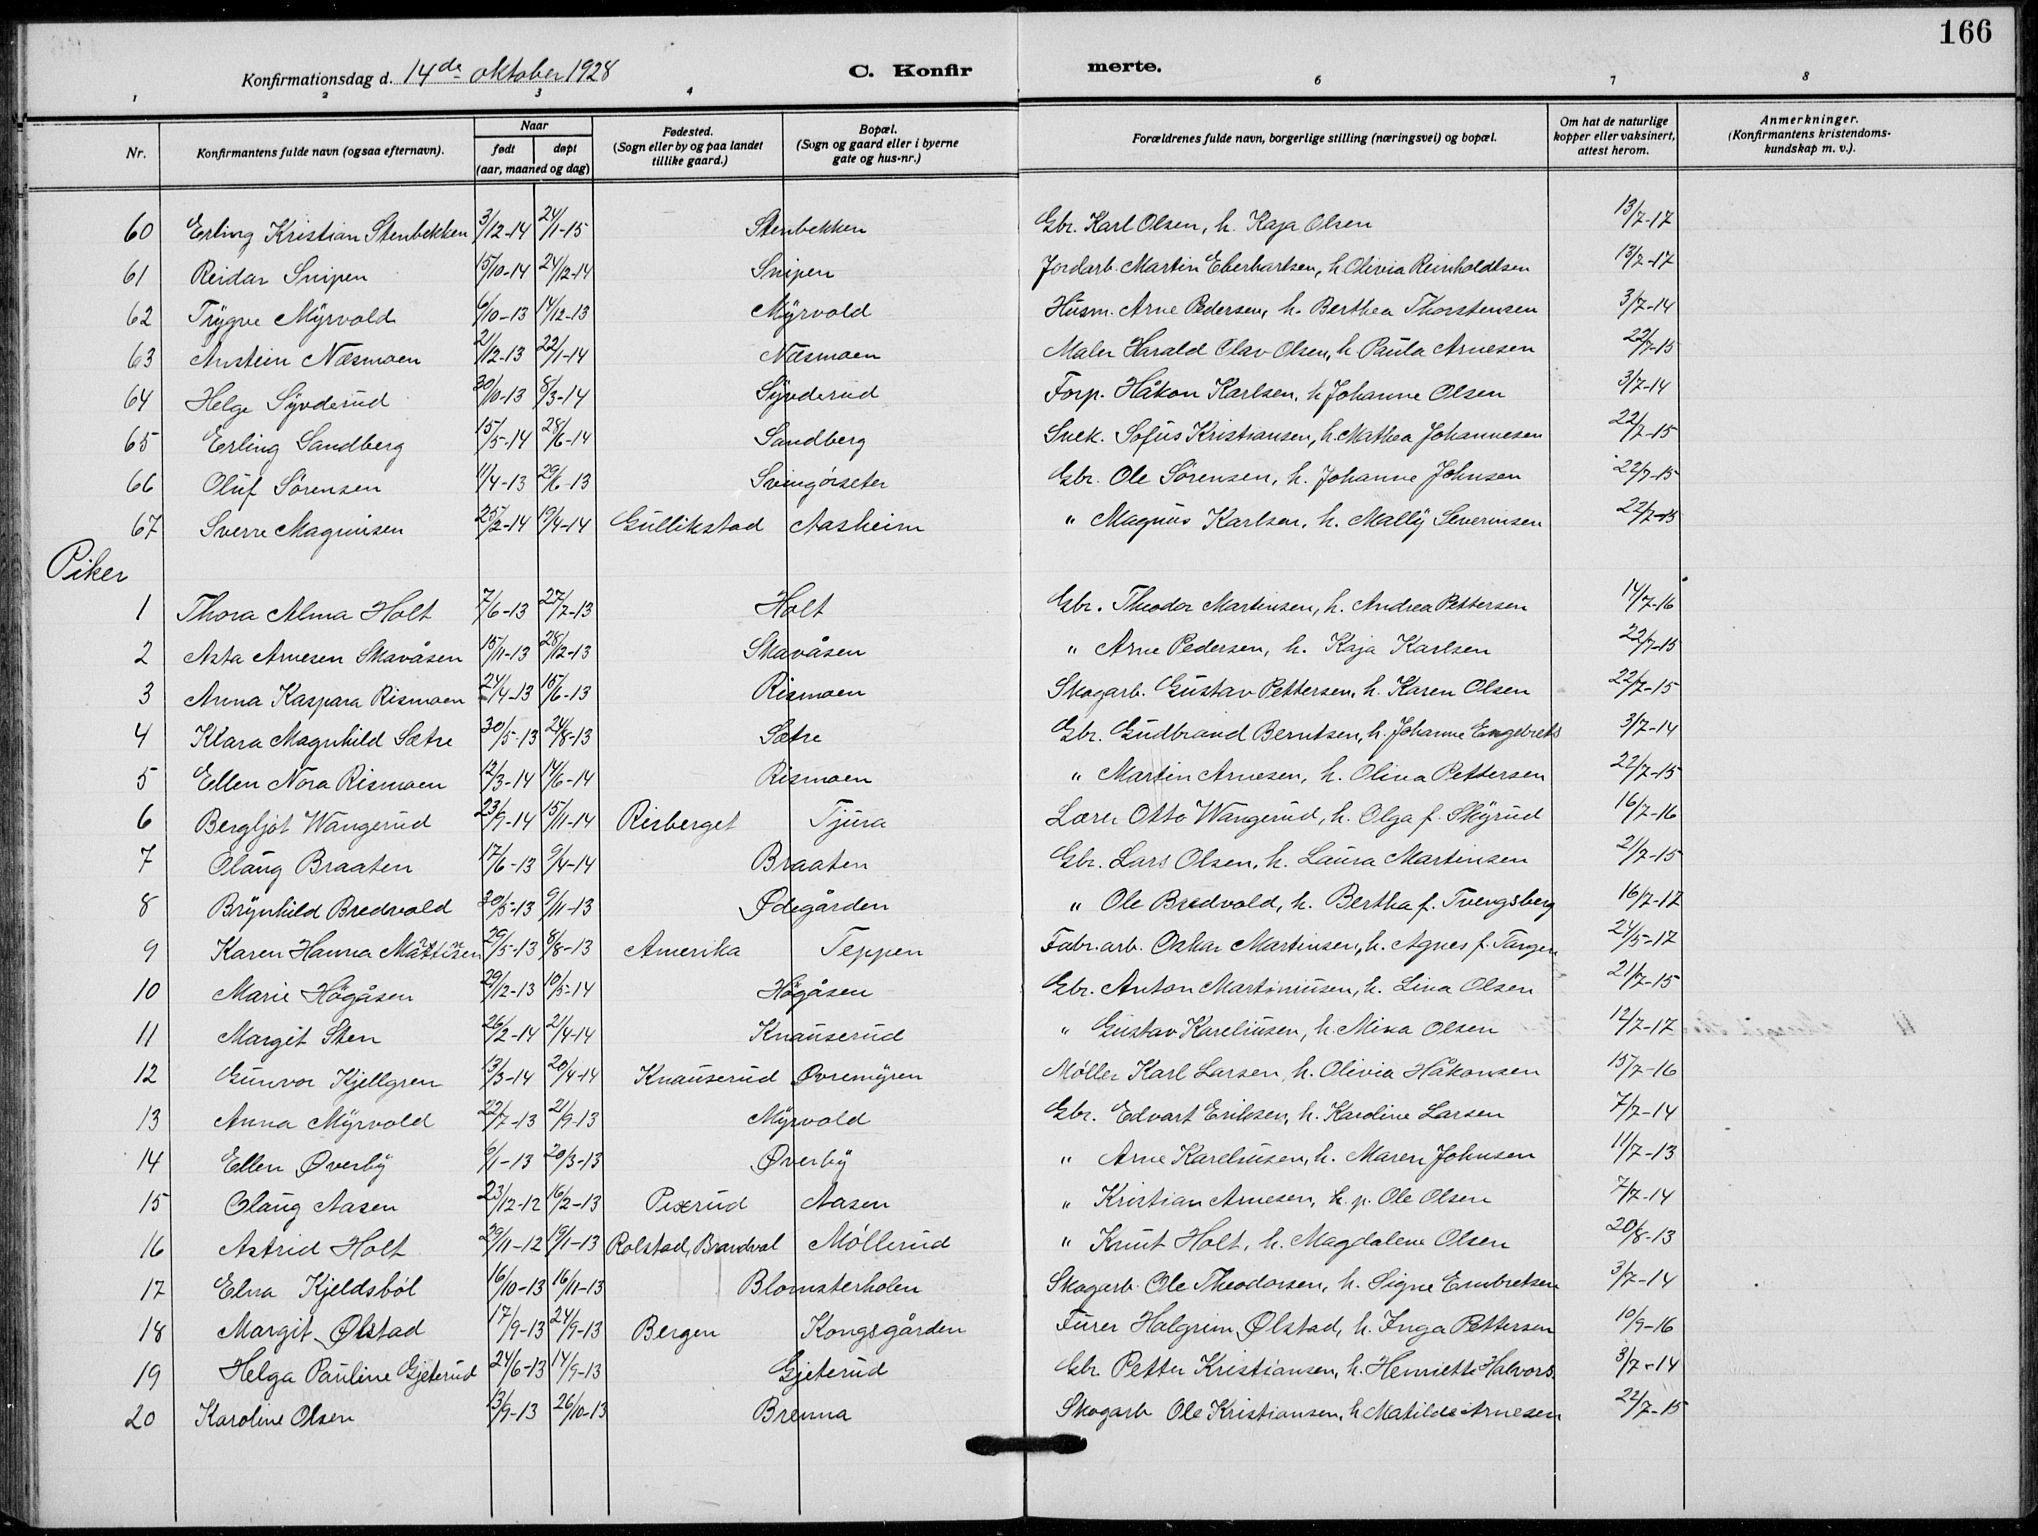 166
Konfirmationsdag d. 14de oktober 1928 C. Konfir merte.
1 2 3 4 6 7 8
Nr. Konfirmantens fulde navn (ogsaa efternavn). Naar født døpt (aar, maaned og dag) Fødested. (Sogn eller by og paa landet tillike gaard.) Bopæl. (Sogn og gaard eller i byerne gate og hus-nr.) Forældrenes fulde navn, borgerlige stilling (næringsvei) og bopæl. Om hat de naturlige kopper eller vaksinert, attest herom. Anmerkninger. (Konfirmantens kristendoms-kundskap m. v.).
60 Erling Kristian Stenbekken 3/12-14 24/1-15 Stenbekken Gbr. Karl Olsen, h. Kaja Olsen 13/7-17
61 Reidar Snipen 15/10-14 24/12-14 Snipen Jordarb. Martin Eberhartsen, h Olivia Reinholdtsen 13/7-17
62 Trygve Myrvold 6/10-13 14/12-13 Myrvold Husm. Arne Pedersen, h. Berthea Thorstensen 3/7-14
63 Anstein Næsmoen 21/12-13 22/1-14 Næsmoen Maler Harald Olav Olsen, h Paula Arnesen 22/7-15
64 Helge Syvderud 30/10-13 8/3-14 Syvderud Forp. Håkon Karlsen, h Johanne Olsen 3/7-14
65 Erling Sandberg 15/5-14 28/6-14 Sandberg Snek. Sofus Kristiansen, h. Mathea Johannesen 22/7-15
66 Oluf Sörensen 11/4-13 29/6-13 Svingörseter Gbr. Ole Sörensen, h. Johanne Johnsen 22/7-15
67 Sverre Magnusen 25/2-14 19/4-14 Gullikstad Aasheim " Magnus Karlsen, h. Mally Severinsen 22/7-15
Piker
1 Thora Alma Holt 7/6-13 27/7-13 Holt Gbr. Theodor Martinsen, h. Andrea Pettersen 14/7-16
2 Asta Arnesen Skavåsen 15/11-13 28/12-13 Skavåsen " Arne Pedersen, h. Kaja Karlsen 22/7-15
3 Anna Kaspara Rismoen 24/4-13 15/6-13 Rismoen Skogarb. Gustav Pettersen, h. Karen Olsen 22/7-15
4 Klara Magnhild Sætre 30/5-13 24/8-13 Sætre Gbr. Gudbrand Berntsen, h. Johanne Engebrets 3/7-14
5 Ellen Nora Rismoen 12/3-14 14/6-14 Rismoen " Martin Arnesen, h. Olina Pettersen 22/7-15
6 Bergljot Wangerud 23/9-14 15/11-14 Risberget Tjura Lærer Otto Wangerud, h. Olga f. Skyrud 16/7-16
7 Olaug Braaten 17/6-13 9/4-14 Braaten Gbr. Lars Olsen, h. Laura Martinsen 21/7-15
8 Brynhild Bredvold 30/5-13 9/11-13 Ødegården " Ole Bredvold, h. Bertha f. Tvengsberg 16/7-17
9 Karen Hanna Martinsen 29/5-13 8/8-13 Amerika Teppen Fabr.arb. Oskar Martinsen, h. Agnes f. Tangen 24/5-17
10 Marie Högåsen 29/12-13 10/5-14 Högåsen Gbr. Anton Martiniusen, h. Lina Olsen 21/7-15
11 Margit Sten 26/2-14 21/4-14 Knauserud " Gustav Kareliusen, h. Mina Olsen 12/7-17
12 Gunvor Kjellgren 13/3-14 20/4-14 Knauserud Øvremyren Møller Karl Larsen, h. Olivia Håkonsen 15/7-16
13 Anna Myrvold 22/7-13 21/9-13 Myrvold Gbr. Edvart Eriksen, h. Karoline Larsen 7/7-14
14 Ellen Øverby 6/1-13 20/3-13 Øverby " Arne Kareliusen, h. Maren Johnsen 11/7-13
15 Olaug Aasen 23/12-12 16/2-13 Pexrud Aasen " Kristian Arnesen, h. p. Ole Olsen 7/7-14
16 Astrid Holt 29/11-12 19/1-13 Rolstad, Brandval Møllerud " Knut Holt, h. Magdalene Olsen 20/8-13
17 Elna Kjeldsböl 16/10-13 16/11-13 Blomsterholen Skogarb. Ole Theodorsen, h. Signe Embretsen 3/7-14
18 Margit Ølstad 17/9-13 24/9-13 Bergen Kongsgården Furer Halgrim Ølstad, h. Inga Pettersen 10/9-16
19 Helga Pauline Gjeterud 24/6-13 14/9-13 Gjeterud Gbr Petter Kristiansen, h. Henriette Halvors. 3/7-14
20 Karoline Olsen 23/9-13 26/10-13 Brenna Skogarb Ole Kristiansen, h Matilde Arnesen 22/7-15